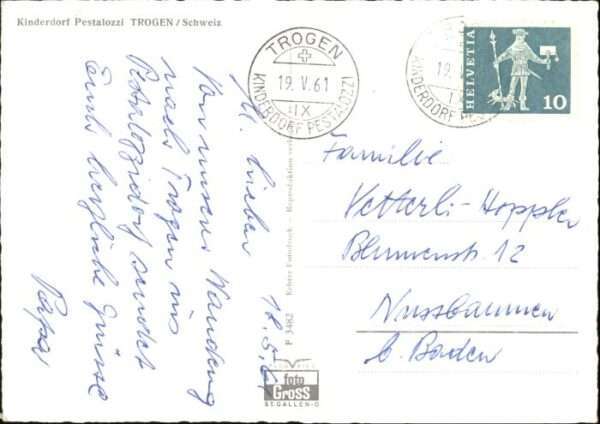 Kinderdorf Pestalozzi TROGEN / Schweiz
TROGEN
19. V. 61
IX
KINDERDORF PESTALOZZI
HELVETIA
10
18. 5. 61
M. Lieben
Von unserer Wanderung
nach Trogen ins
Pestalozzidorf sendet
Euch herzliche Grüsse
Papa
Familie
Vetterli-Hoppler
Blumenstr. 12
Nussbaumen
b. Baden
Echter Fotodruck - Reproduktion verboten
P 3482
foto
Gross
ST. GALLEN-O